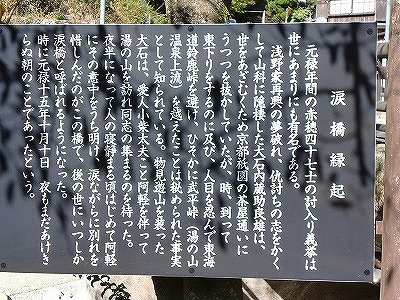 涙橋縁起
元禄年間の赤穂四十七士の討入り義挙は
世にあまりにも有名である。
浅野家再興の夢破れ、仇討ちの志をかく
して山科に隠棲した大石内蔵助良雄は、
世をあざむくため京都祇園の茶屋通いに
うつつを抜かしていたが、時、到って
東下りをするのに及び人目を忍んで東海
道鈴鹿峠を避け、ひそかに武平峠(湯の山
温泉上流)を越えたことは秘められた事実
として知られている。物見遊山を装った
大石は、愛人小柴太夫こと阿軽を伴って
湯の山を訪れ同志の集まるのを待った。
夜半になって人の寝静まる頃はじめて阿軽
にその意中をうち明け、涙ながらに別れを
惜しんだのがこの橋で、後の世にいつしか
涙橋と呼ばれるようになった。
時に元禄十五年十月十日 夜もまだあけき
らぬ朝のことであったという。